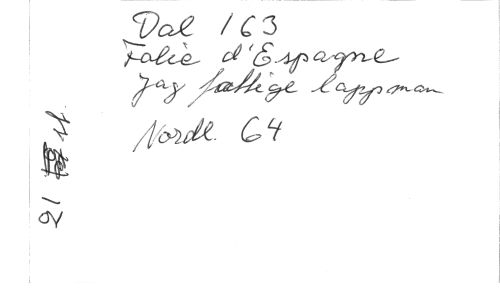 Dal 163
Folie d'Espagne
Jag fattige lappman
Nordl. 64
21
11.